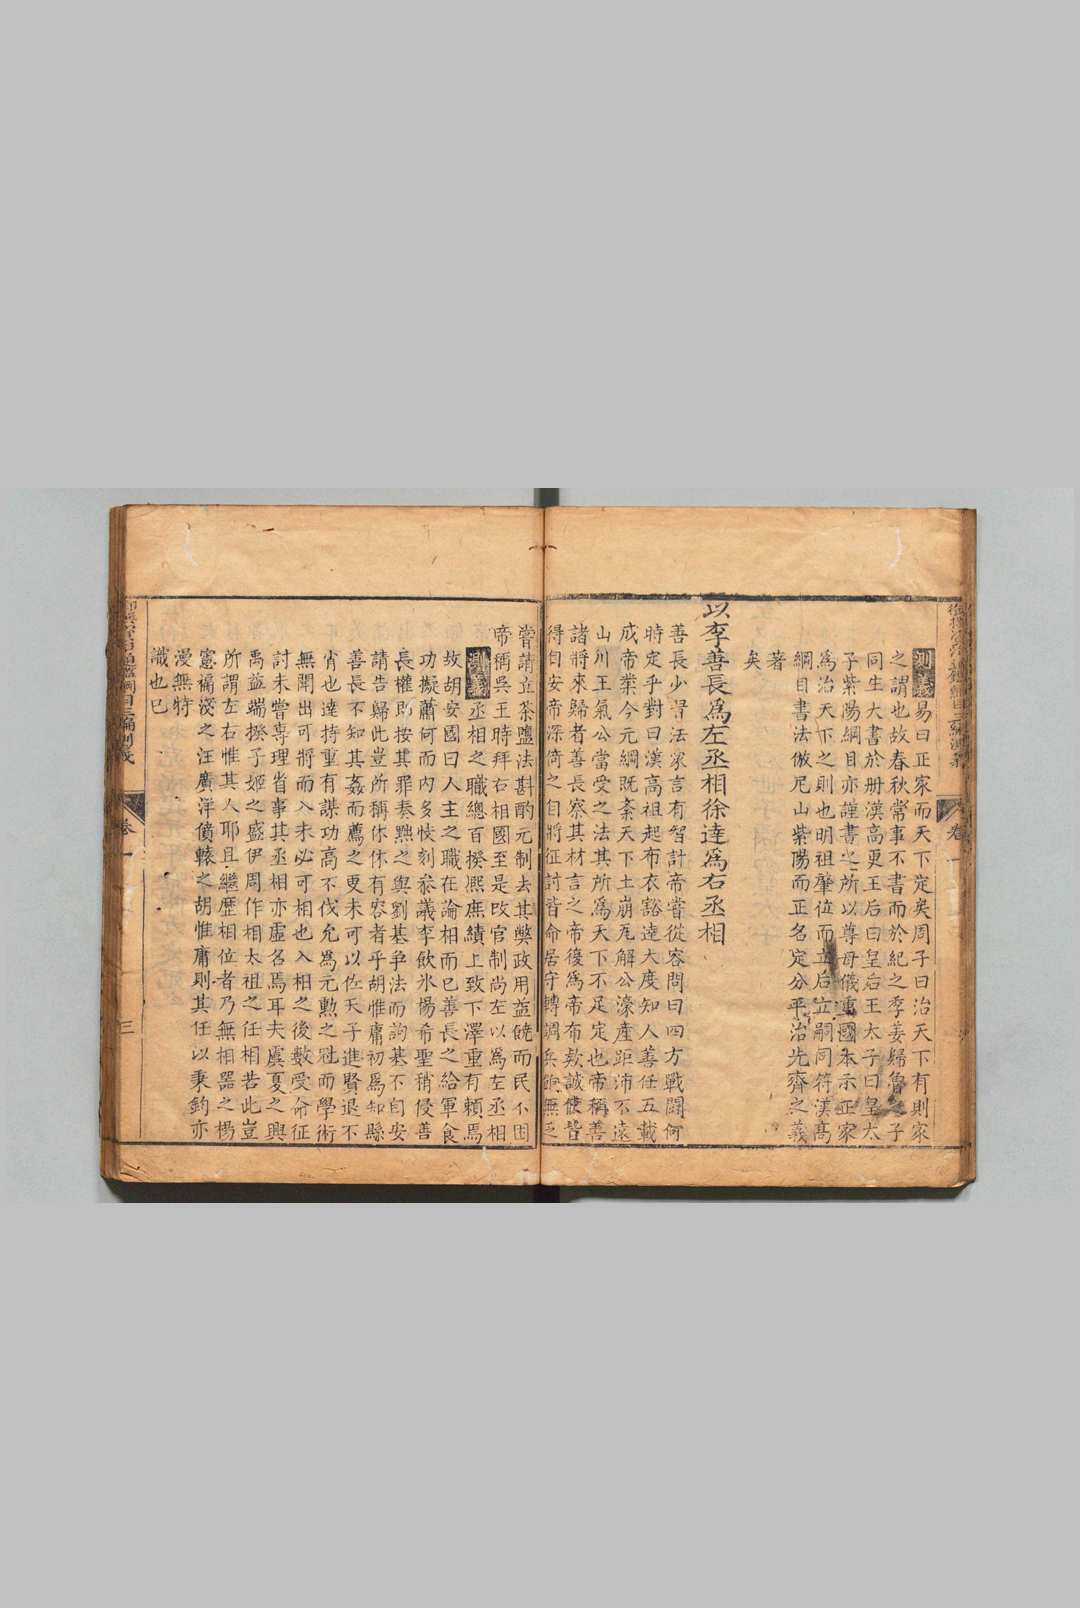 測義易曰正家而天下定矣周子曰治天下有則家
之謂也故春秋常事不書而於紀之季姜歸魯之子
同生大書於册漢高更王后曰皇后王太子曰皇太
子紫陽綱目亦謹書之所以尊母儀重國本示正家
爲治天下之則也明祖肇位而立后立嗣同符漢高
綱目書法倣尼山紫陽而正名定分平治先齊之義
著
矣
以李善長爲左丞相徐達爲右丞相
善長少習法家言有智計帝嘗從容問曰四方戰鬪何
時定乎對曰漢高祖起布衣豁達大度知人善任五載
成帝業今元綱既紊天下土崩瓦解公濠產距沛不遠
山川王氣公當受之法其所爲天下不足定也帝稱善
諸將來歸者善長察其材言之帝復爲帝布欵誠使皆
得自安帝深倚之自將征討皆命居守轉調兵餉無乏
嘗請立茶鹽法斟酌元制去其弊政用益饒而民不困
帝稱吳王時拜右相國至是改官制尚左以爲左丞相
測義丞相之職總百揆熈庶績上致下澤重有頼焉
故胡安國曰人主之職在論相而已善長之給軍食
功擬蕭何而內多忮刻叅議李飲氷楊希聖稍侵善
長權即按其罪奏黜之與劉基爭法而訽基不自安
請告歸此豈所稱休休有容者乎胡惟庸初爲知縣
善長不知其姦而薦之更未可以佐天子進賢退不
肖也達持重有謀功高不伐允爲元勲之冠而學術
無聞出可將而入未必可相也入相之後數受命征
討未嘗專理省事其丞相亦虛名焉耳夫虞夏之興
禹益端揆子姬之盛伊周作相太祖之任相若此豈
所謂左右惟其人耶且繼歷相位者乃無相器之楊
憲褊淺之汪廣洋僨轅之胡惟庸則其任以秉鈞亦
漫無特
識也已
卷一
三